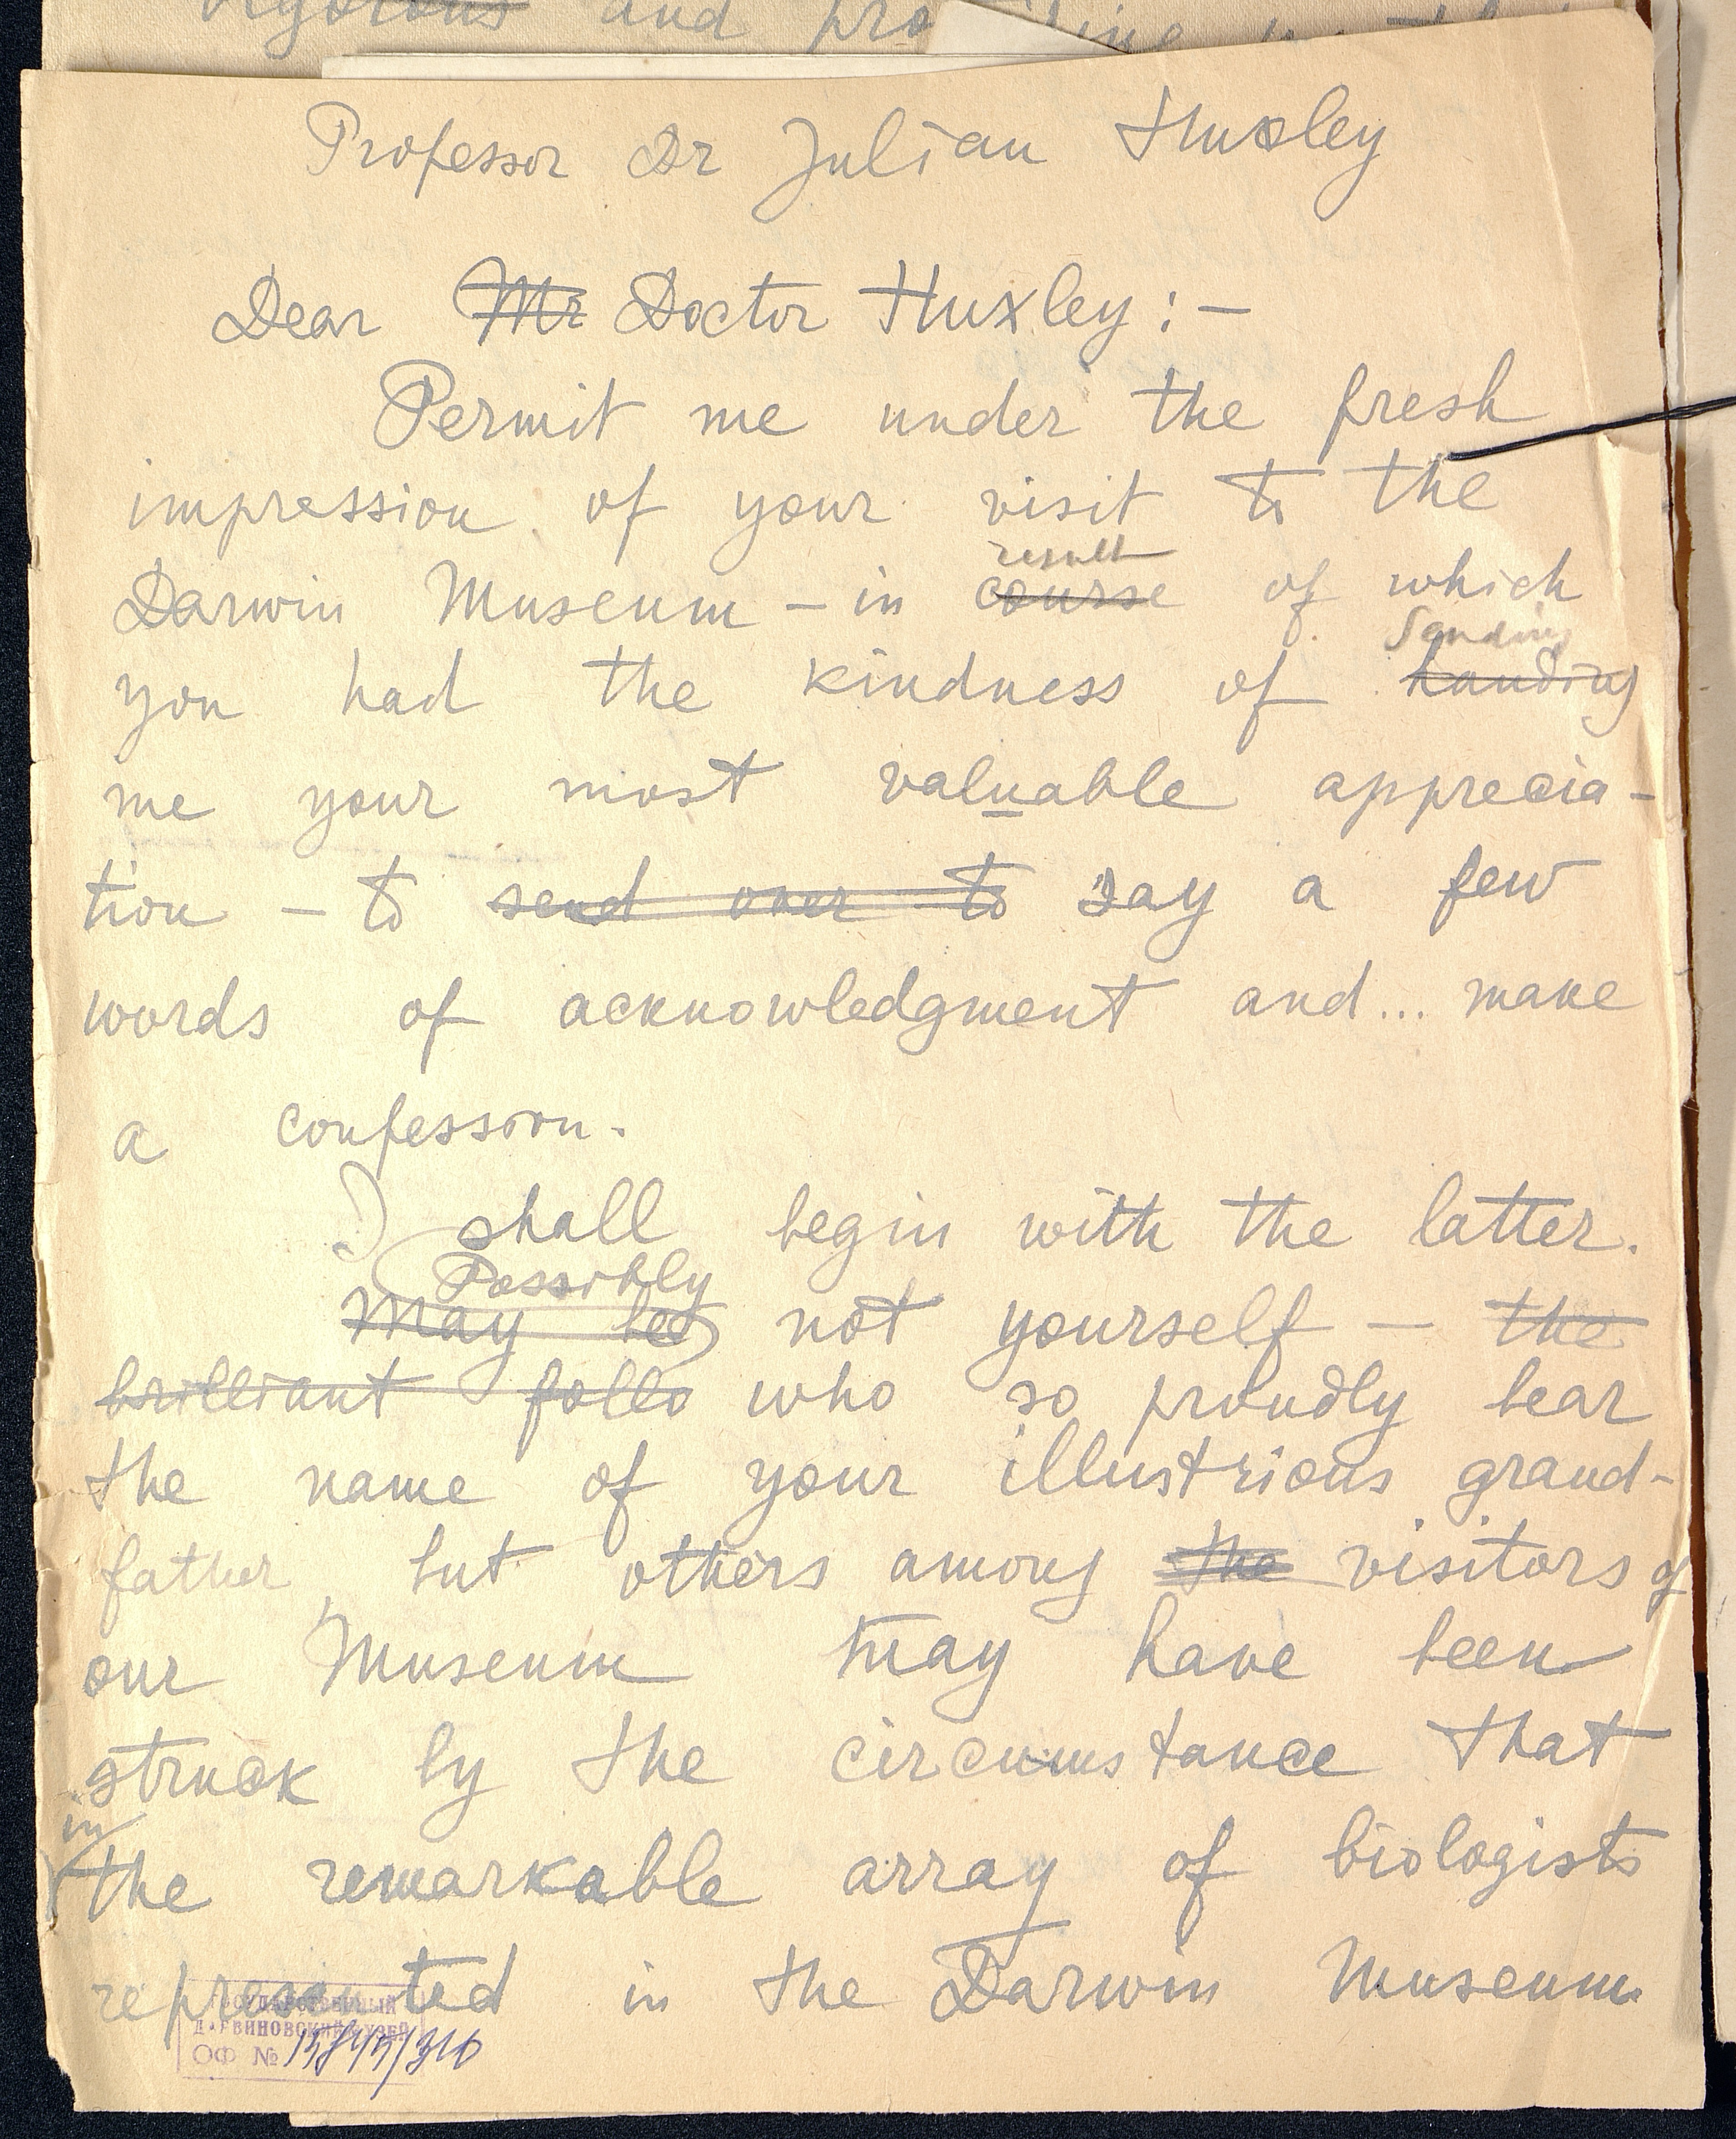 vigorous and pro
Professor Dr Julian Huxley
Dear Mr Doctor Huxley:—
Permit me under the fresh
impression of your visit to the
result
Darwin Museum – in course of which
Sending
you had the kindness of handing
me your most valuable apprecia-
tion – to send over to say a few
words of acknowledgment and... make
a confession.
I shall begin with the latter.
Possibly
May be not yourself – the
brilliant follo who so proudly bear
the name of your illustrious grand-
father, but others among the visitors of
our Museum may have been
struck by the circumstance that
in
the remarkable array of biologists
represented in the Darwin Museum
ГОСУДАРСТВЕННЫЙ
ДАРВИНОВСКИЙ МУЗЕЙ
ОФ №